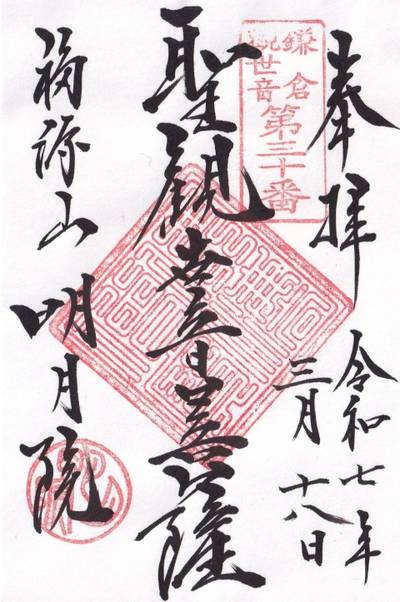 奉拝
令和七年
三月十八日
鎌倉
観世音
第三十番
聖観世音菩薩
福源山 明月院